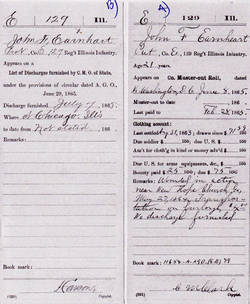 E 127 Ill.
John F. Earnhart
Co. E, 127 Reg't Illinois Infantry.
Appears on a
List of Discharges furnished by C. M. O. of State,
under the provisions of circular dated A. G. O.,
June 29, 1865.
Discharge furnished July 7, 1865.
Where at Chicago Ills
to date from Not stated, 186 .
Remarks:
Book mark:
Copyist.
E 129 Ill.
John F. Earnhart
Pvt., Co. E, 129 Reg't Illinois Infantry.
Age 21 years.
Appears on Co. Muster-out Roll, dated
Washington D.C. June 5, 1865.
Muster-out to date 186 .
Last paid to Feb 28, 1865.
Clothing account:
Last settled , 1863; drawn since $
Due soldier $ 100; due U. S. $ 100
Am't for cloth'g in kind or money adv'd $ 100
Due U. S. for arms, equipments, &c., $ 100
Bounty paid $ 25 100; due $ 75 100
Remarks: Wounded in action
near New Hope Church Ga.
May 27, 1864.
on furlough
No discharge furnished
Book mark:
Clark
Copyist.